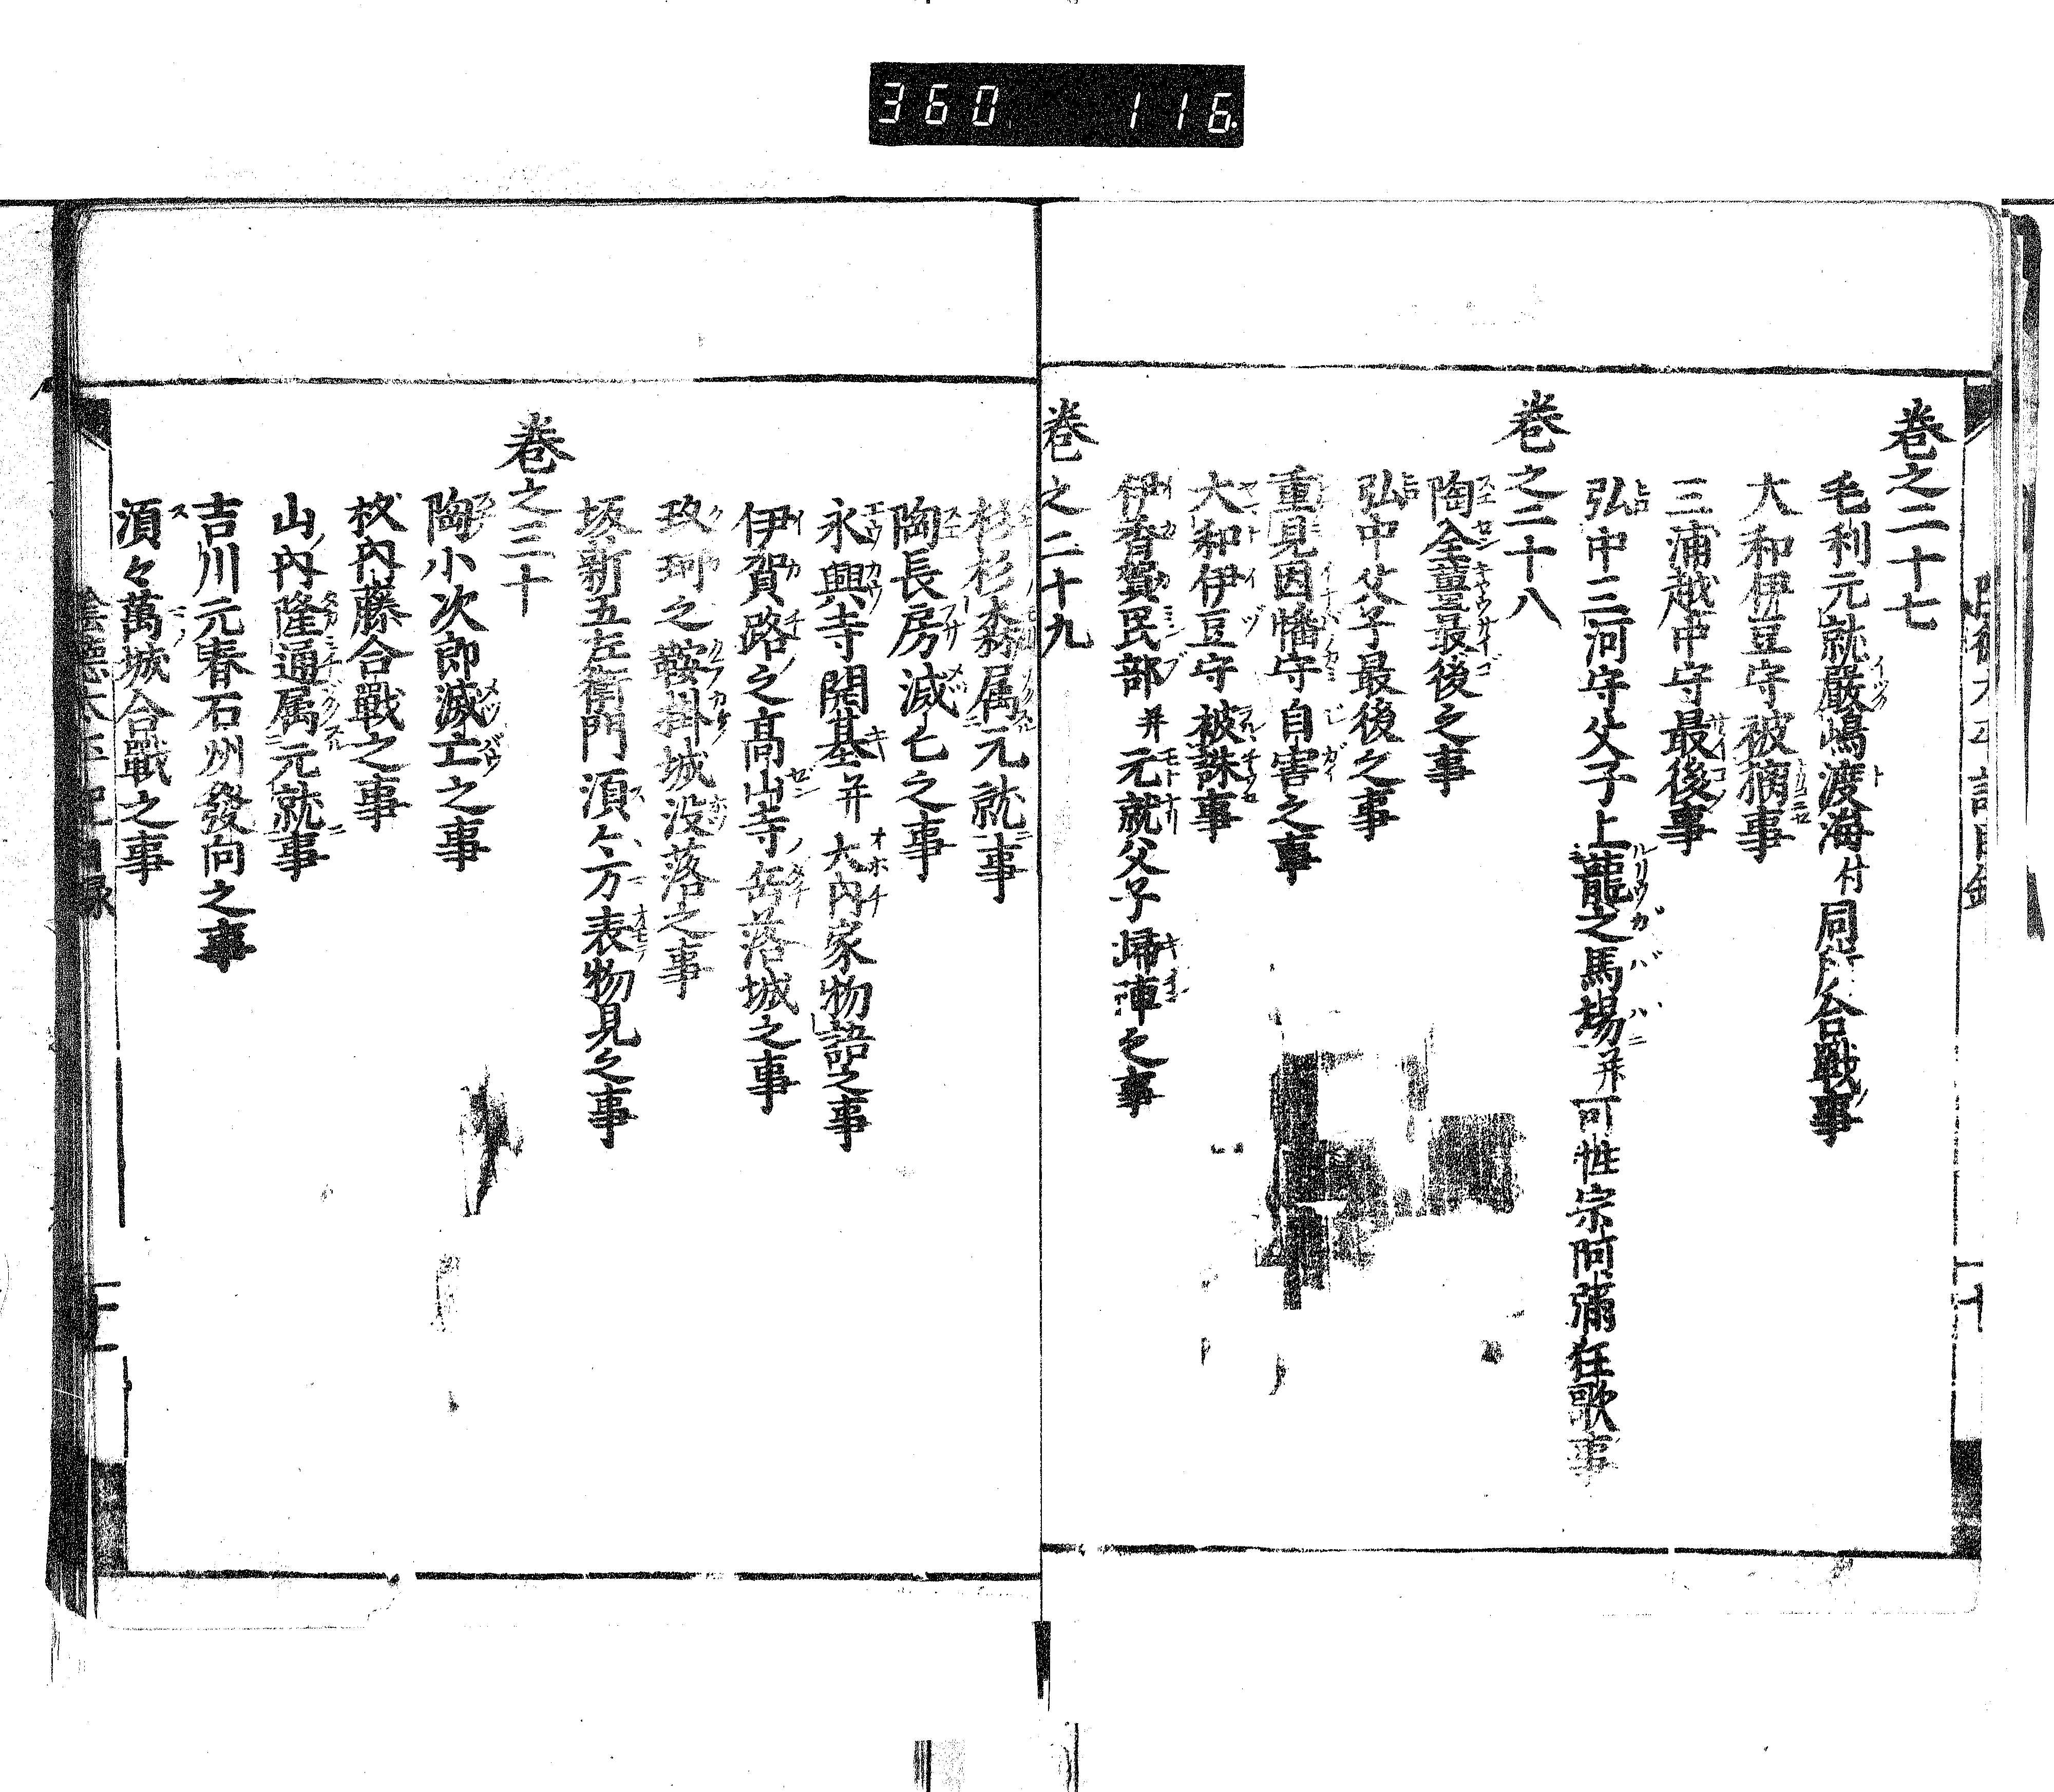 360 116
巻之二十七
毛利元就嚴嶋渡海付同所合戰事
大和伊豆守被擒事
三浦越中守最後事
弘中三河守父子上龍之馬場并可性宗阿彌狂歌事
巻之二十八
陶全薑最後之事
弘中父子最後之事
重見因幡守自害之事
大和伊豆守被誅事
伊香賀民部并元就父子歸陣之事
巻之二十九
杉杉森属元就事
陶長房滅亡之事
永興寺開基并大内家物語之事
伊賀路之髙山寺岳落城之事
玖珂之鞍掛城没落之事
坂新五左衛門湏々万表物見之事
巻之三十
陶小次郎滅亡之事
杉内藤合戰之事
山内隆通属元就事
吉川元春石州發向之事
湏々萬城合戰之事